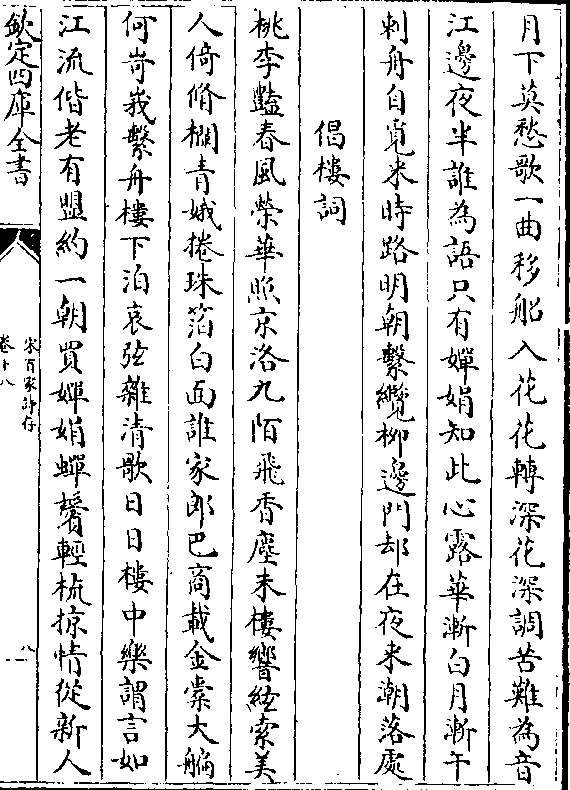 月下莫愁歌一曲移船入花花轉深花深調苦難為音
江邊夜半誰為語只有嬋娟知此心露華漸白月漸午
刺舟自覓來時路明朝繫纜柳邊門却在夜来潮落處
倡樓詞
桃李豔春風榮華照京洛九陌飛香塵朱樓響絃索美
人倚脩欄青娥捲珠箔白面誰家郎巴商載金橐大艑
何岢峩繫舟樓下泊哀弦雜清歌日日樓中樂謂言如
江流偕老有盟約一朝買嬋娟蟬鬢輕梳掠情從新人
欽定四庫全書
宋百家詩存
卷十八
八